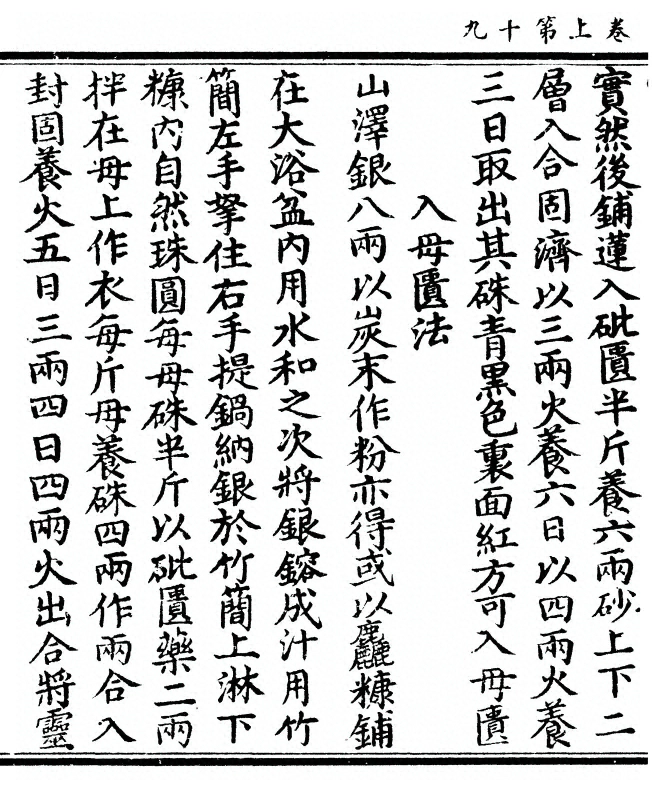 卷上第十九
實然後鋪蓮入砒匱半斤養六兩砂上下二
層入合固濟以三兩火養六日以四兩火養
三日取出其硃青黑色裏面紅方可入母匱
入母匱法
山澤銀八兩以炭末作粉亦得或以麤糠鋪
在大浴盆內用水和之次將銀鎔成汁用竹
簡左手拏住右手提鍋納銀於竹簡上淋下
糠內自然珠圓每母硃半斤以砒匱藥二兩
拌在母上作衣每斤母養硃四兩作兩合入
封固養火五日三兩四日四兩火出合將靈